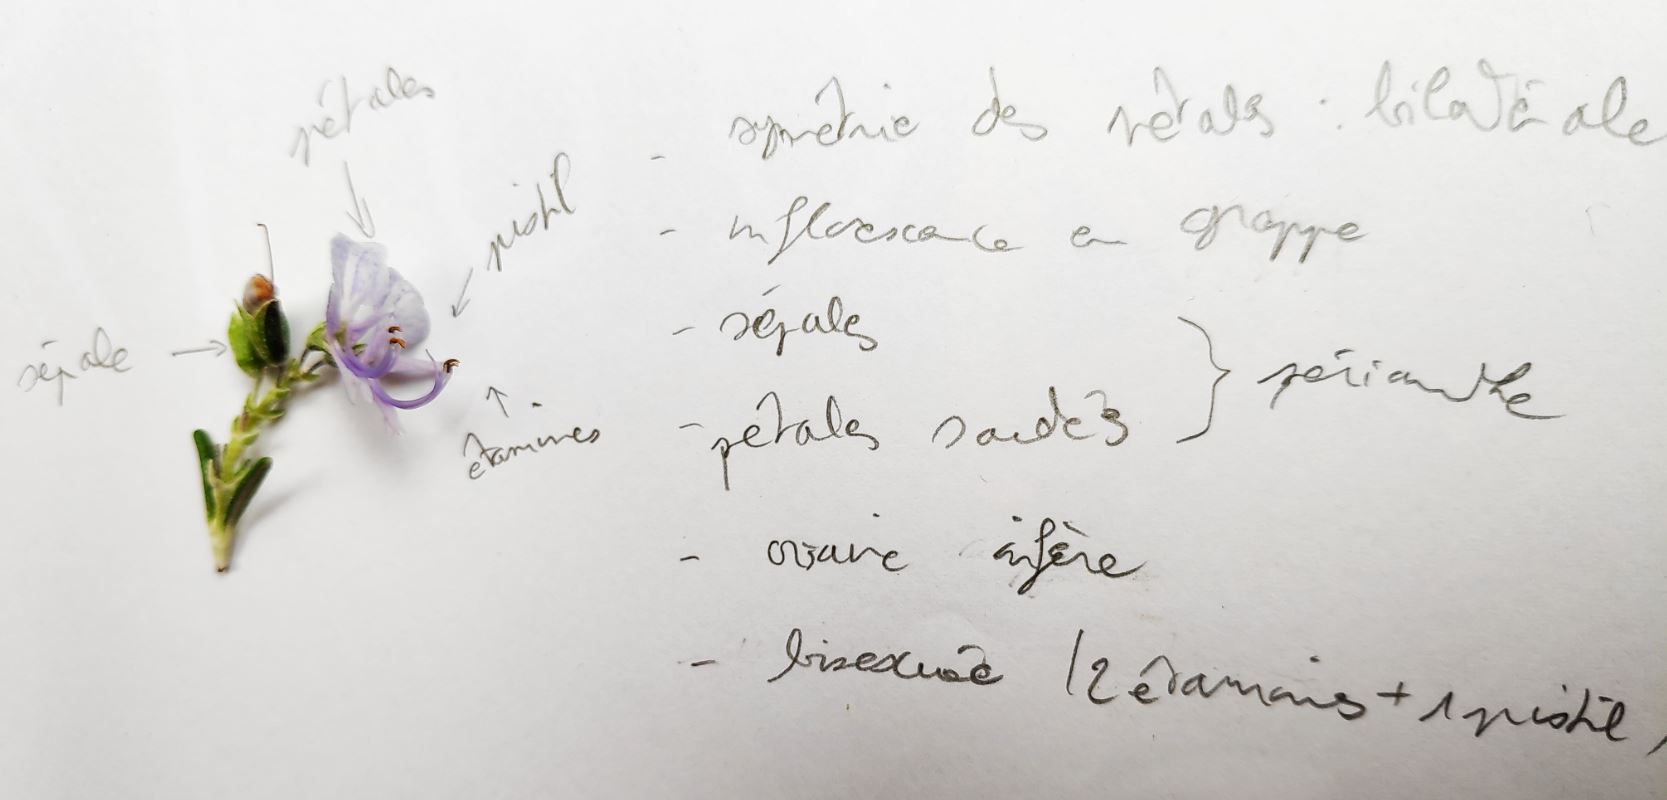 pétales
pistil
sépale
étamines
- symétrie des pétals : bilatérale
- inflorescence en grappe
- sépales
- pétales soudés
} périanthe
- ovaire infère
- bisexuée (2 étamines + 1 pistil)